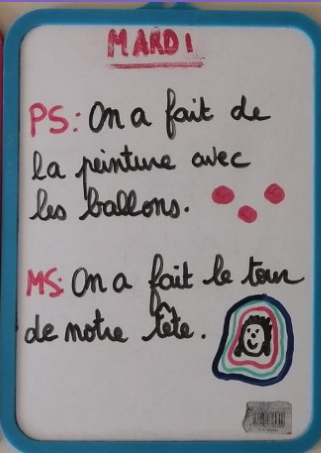 MARDI
PS: On a fait de
la peinture avec
les ballons.
MS: On a fait le tour
de notre tête.